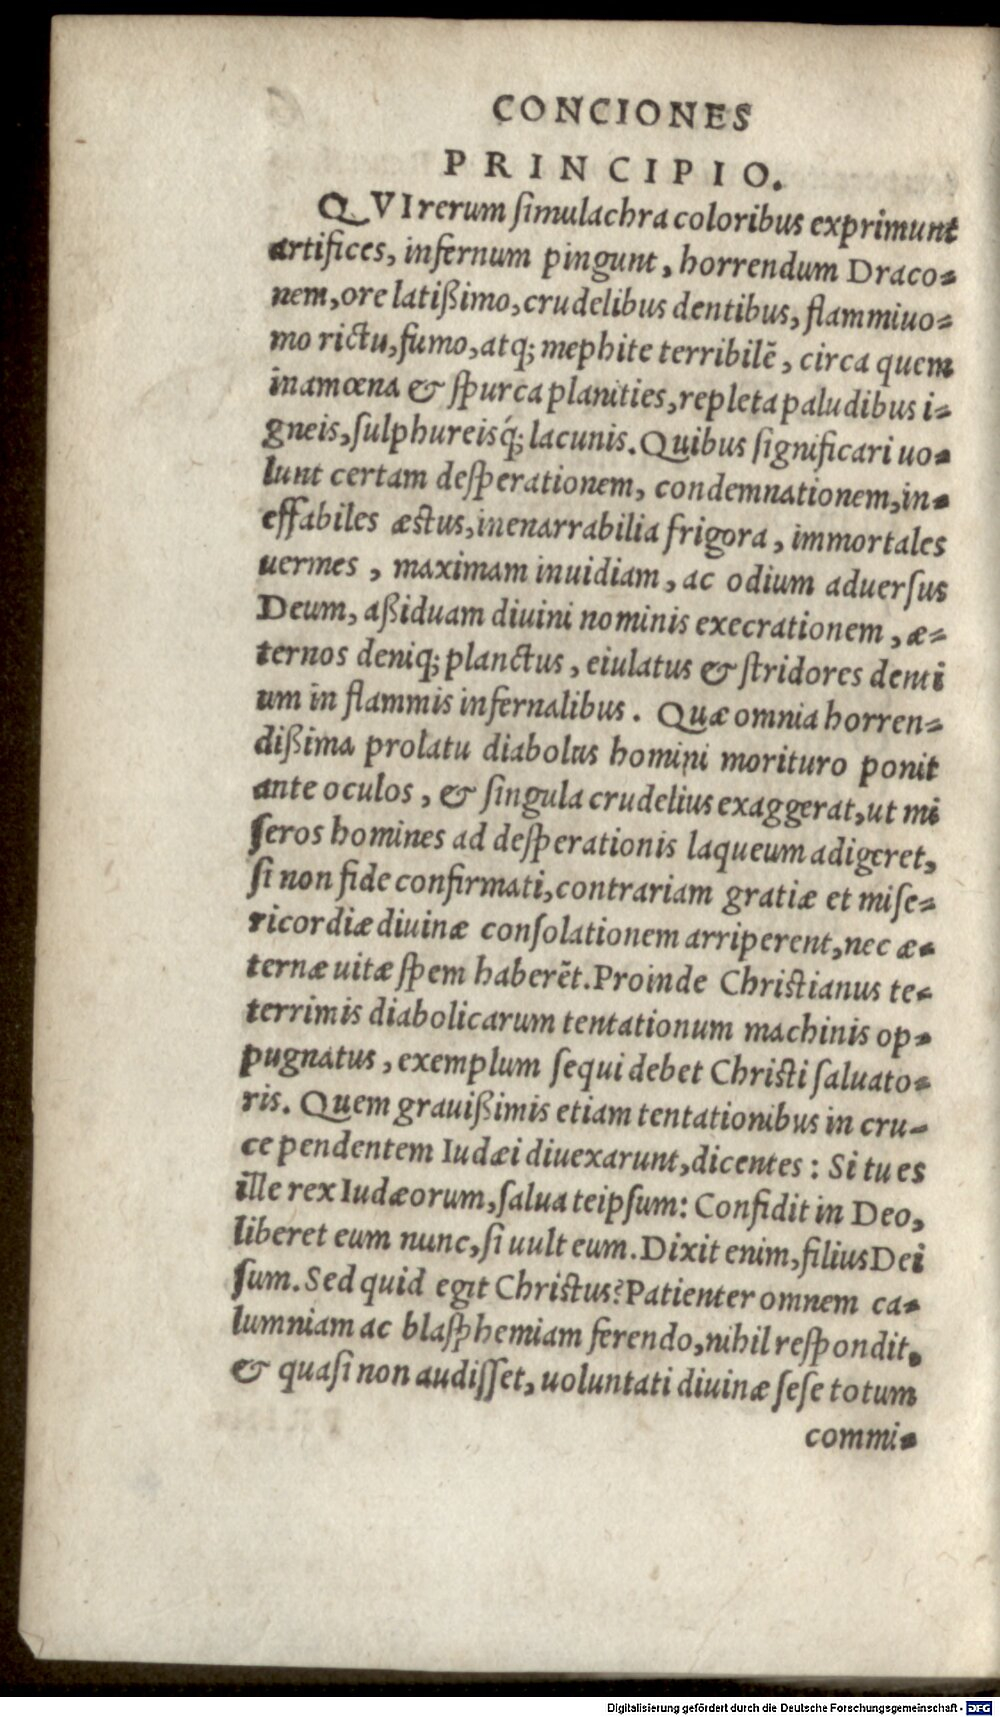 CONCIONES
PRINCIPIO.
QVI rerum ſimulachra coloribus exprimunt
artifices, infernum pingunt, horrendum Draco⸗
nem, ore latißimo, crudelibus dentibus, flammiuo⸗
mo rictu, fumo, atq; mephite terribilē, circa quem
inamœna & ſpurca planities, repleta paludibus i⸗
gneis, ſulphureisq́; lacunis. Quibus ſignificari uo⸗
lunt certam deſperationem, condemnationem, in⸗
effabiles æstus, inenarrabilia frigora, immortales
uermes, maximam inuidiam, ac odium aduerſus
Deum, aßiduam diuini nominis execrationem, æ⸗
ternos deniq; planctus, eiulatus & ſtridores denti
um in flammis infernalibus. Quæ omnia horren⸗
dißima prolatu diabolus homini morituro ponit
ante oculos, & ſingula crudelius exaggerat, ut mi
ſeros homines ad deſperationis laqueum adigeret,
ſi non fide confirmati, contrariam gratiæ et miſe⸗
ricordiæ diuinæ conſolationem arriperent, nec æ⸗
ternæ uitæ ſpem haberēt. Proinde Christianus te⸗
terrimis diabolicarum tentationum machinis op⸗
pugnatus, exemplum ſequi debet Christi ſaluato⸗
ris. Quem grauißimis etiam tentationibus in cru⸗
ce pendentem Iudæi diuexarunt, dicentes: Si tu es
ille rex Iudæorum, ſalua teipſum: Confidit in Deo,
liberet eum nunc, ſi uult eum. Dixit enim, filius Dei
ſum. Sed quid egit Christus? Patienter omnem ca⸗
lumniam ac blaſphemiam ferendo, nihil reſpondit,
& quaſi non audiſſet, uoluntati diuinæ ſeſe totum
commi⸗
Digitalisierung gefördert durch die Deutsche Forschungsgemeinschaft - DFG